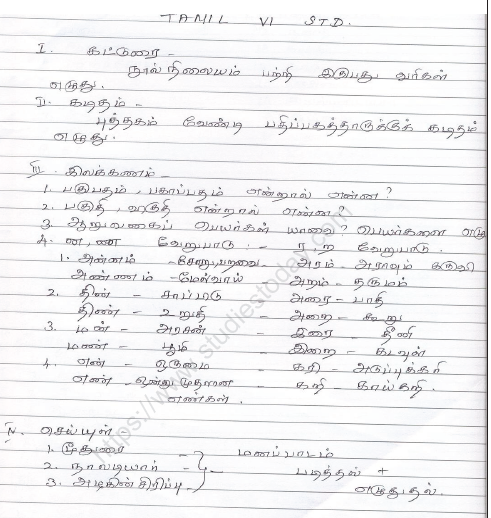 TAMIL VI STD.
I. கட்டுரை -
நூல்நிலையம் பற்றி இருபது வரிகள்
எழுது.
II. கடிதம் -
புத்தகம் வேண்டி பதிப்பகத்தாருக்குக் கடிதம்
எழுது.
III. இலக்கணம் -
1. பகுபதம், பகாப்பதம் என்றால் என்ன?
2. பகுதி, விகுதி என்றால் என்ன?
3. ஆறுவகைப் பெயர்கள் யாவை? பெயர்களை எழு
4. ன, ண வேறுபாடு. - ர ற வேறுபாடு.
1. அன்னம் - சோறு, பறவை - அரம் - அராவும் கருவி
அண்ணம் - மேல்வாய் அறம் - தருமம்
2. தின் - சாப்பாடு அரை - பாதி
திண் - உறுதி - அறை - கூறு
3. மன் - அரசன் - இரை - தீனி
மண் - பூமி - இறை - கடவுள்
4. என் - ஒருமை - கரி - அடுப்புக்கரி
எண் - ஒன்று முதலான - கறி - காய்கறி.
எண்கள்.
IV. செய்யுள்
1. மூதுரை - மனப்பாடம்
2. நாலடியார் - படித்தல் +
3. அழகின் சிரிப்பு - எழுதுதல்.
https://www.studiestoday.com